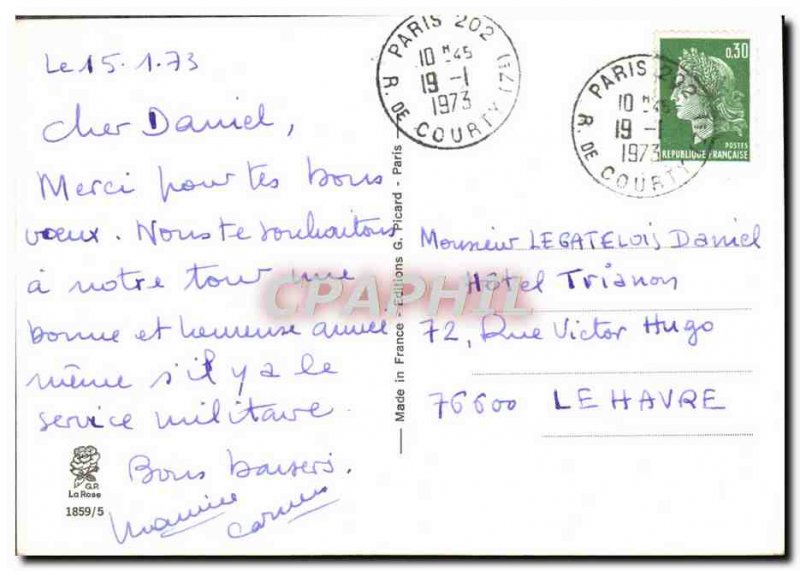 Le 15.1.73
Cher Daniel,
Merci pour tes bons
voeux. Nous te souhaitons
à notre tour une
bonne et heureuse année
même s'il y a le
service militaire.
Bons baisers.
G.P.
La Rose
1859/5
Made in France - Editions G. Picard - Paris
PARIS 202
10 H 45
19 -1
1973
R. DE COURTY (7E)
PARIS 202
10 H 45
19 -1
1973
R. DE COURTY
0,30
POSTES
REPUBLIQUE FRANÇAISE
Monsieur LEGATELOIS Daniel
Hôtel Trianon
72, Rue Victor Hugo
76600 LE HAVRE
CPAPHIL